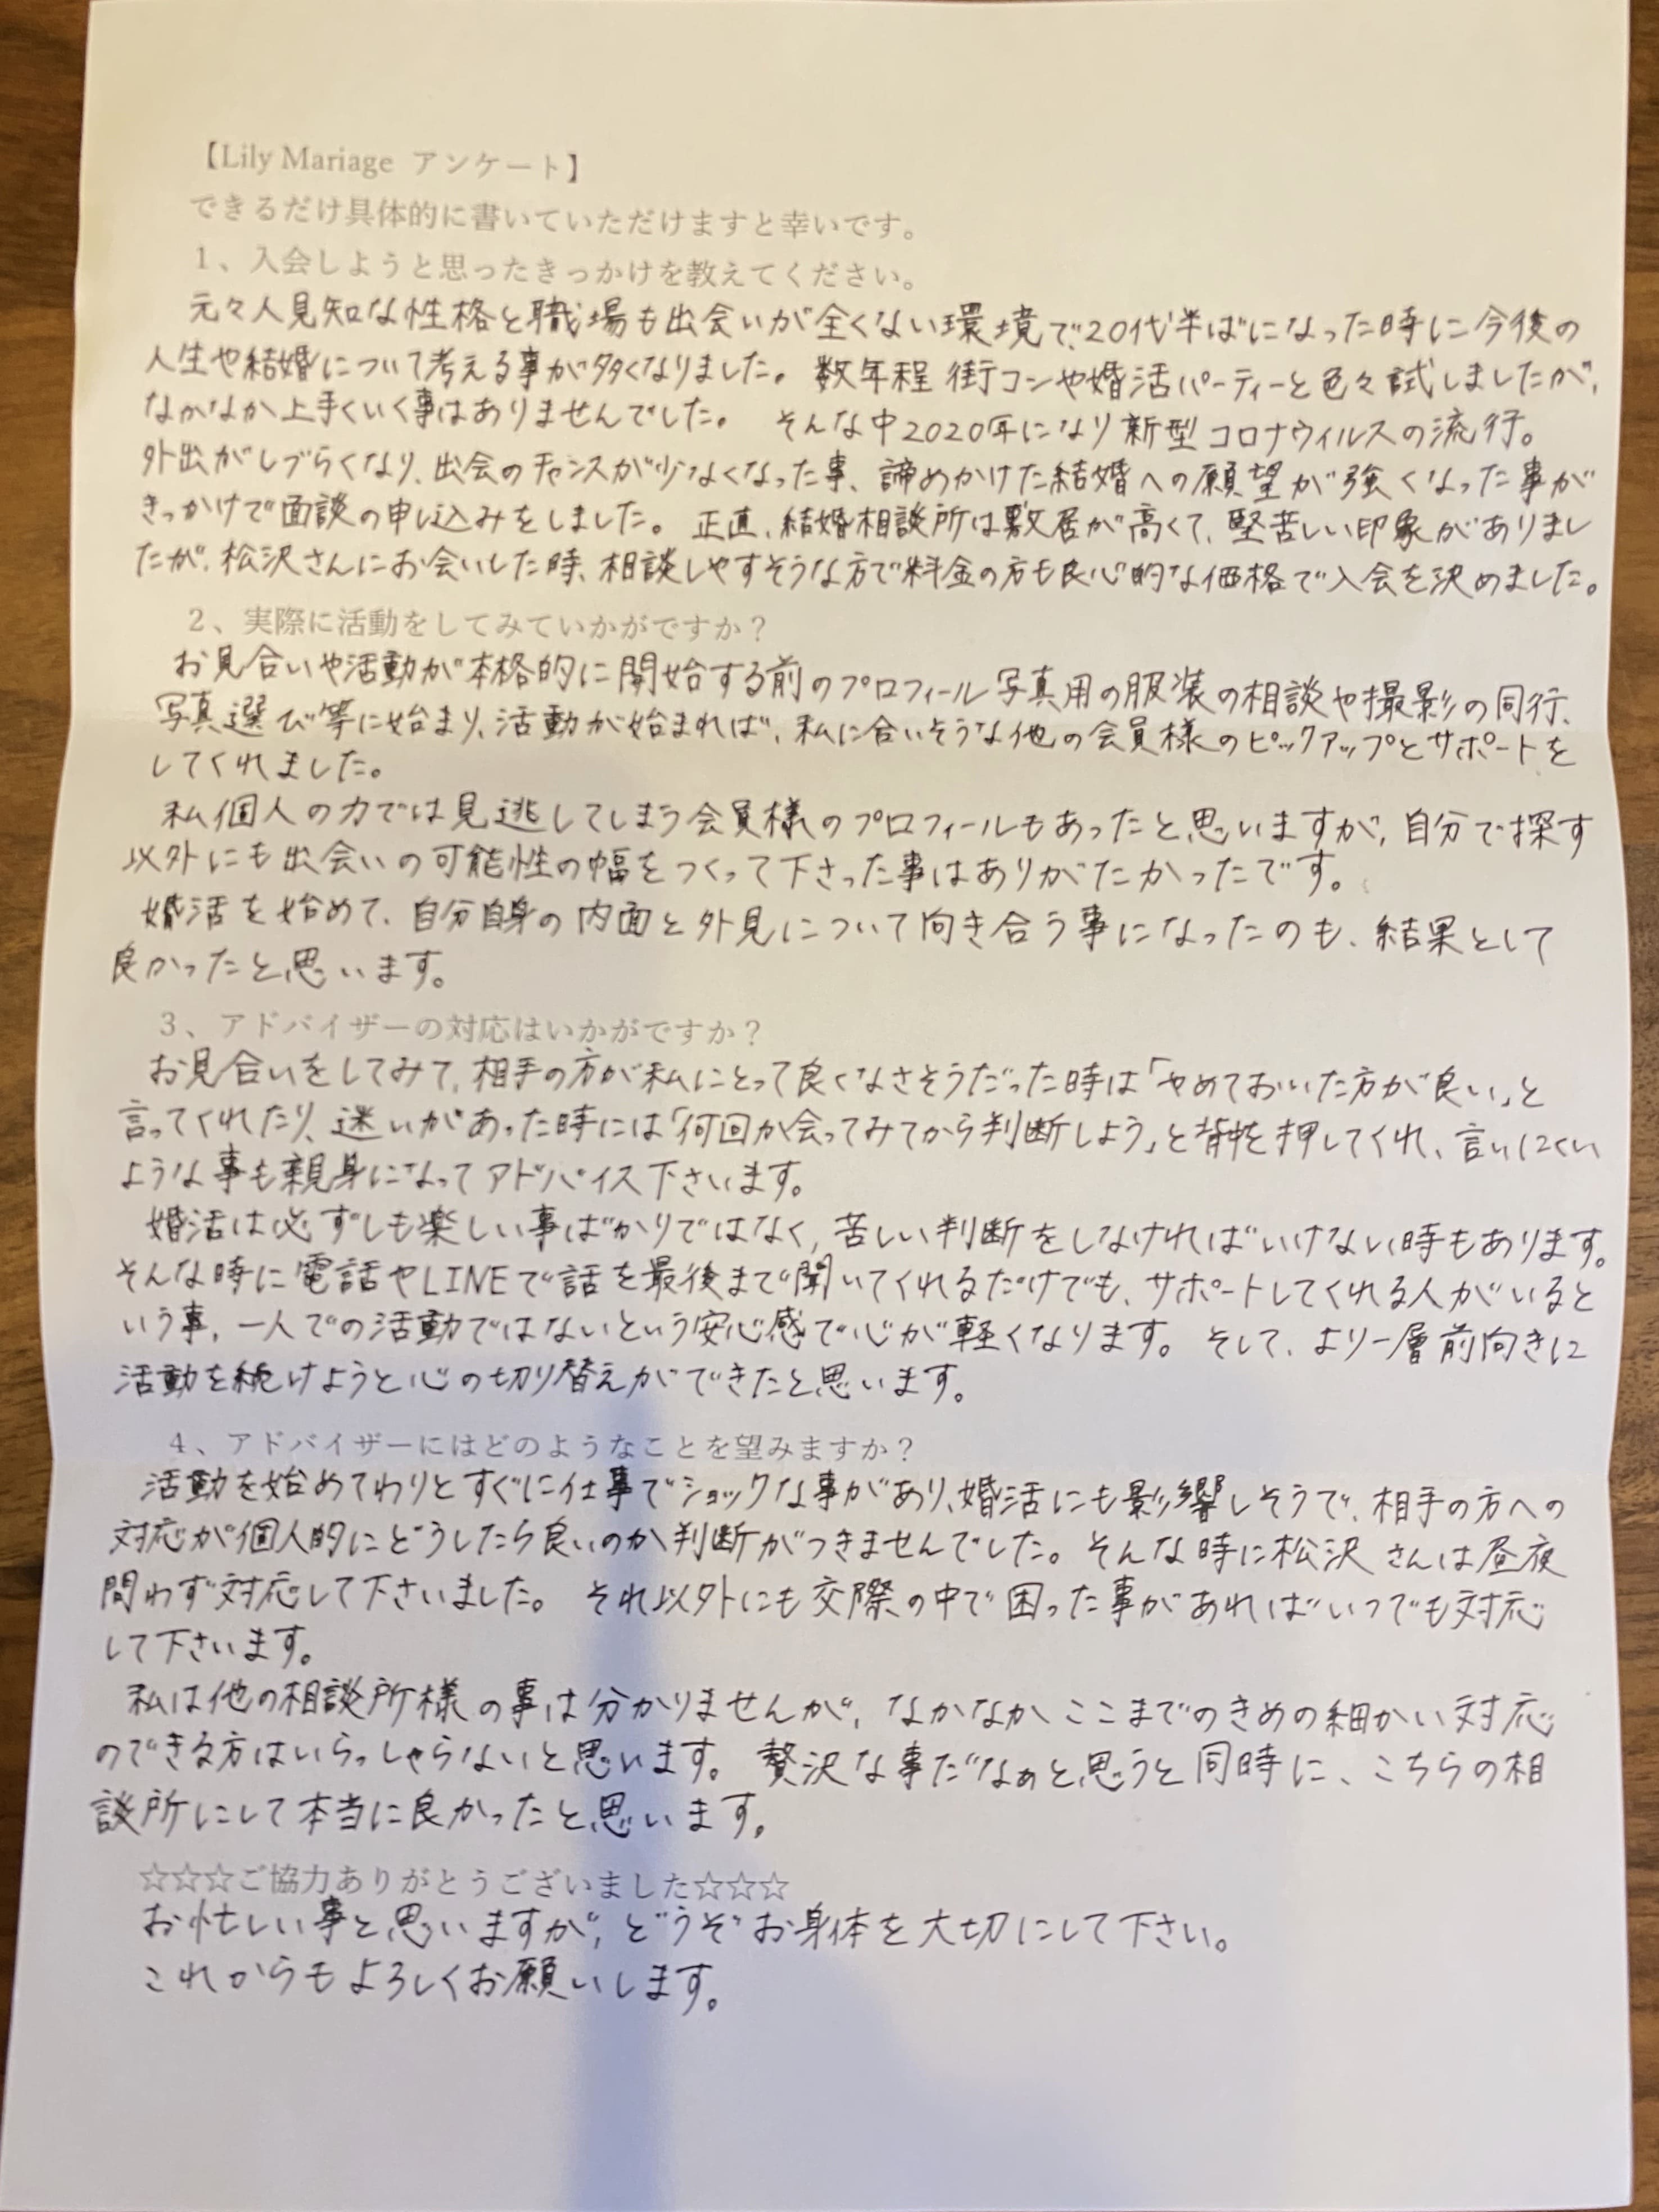 【Lily Mariage アンケート】
できるだけ具体的に書いていただけますと幸いです。
1、入会しようと思ったきっかけを教えてください。
元々人見知な性格と職場も出会いが全くない環境で、20代半ばになった時に今後の
人生や結婚について考える事が多くなりました。数年程 街コンや婚活パーティーと色々試しましたが、
なかなか上手くいく事はありませんでした。 そんな中2020年になり新型コロナウィルスの流行。
外出がしづらくなり、出会のチャンスが少なくなった事、諦めかけた結婚への願望が強くなった事が
きっかけで面談の申し込みをしました。正直、結婚相談所は敷居が高くて、堅苦しい印象がありまし
たが、松沢さんにお会いした時、相談しやすそうな方で料金の方も良心的な価格で入会を決めました。
2、実際に活動をしてみていかがですか？
お見合いや活動が本格的に開始する前のプロフィール写真用の服装の相談や撮影の同行、
写真選び等に始まり、活動が始まれば、私に合いそうな他の会員様のピックアップとサポートを
してくれました。
私個人の力では見逃してしまう会員様のプロフィールもあったと思いますが、自分で探す
以外にも出会いの可能性の幅をつくって下さった事はありがたかったです。
婚活を始めて、自分自身の内面と外見について向き合う事になったのも、結果として
良かったと思います。
3、アドバイザーの対応はいかがですか？
お見合いをしてみて、相手の方が私にとって良くなさそうだった時は「やめておいた方が良い」と
言ってくれたり、迷いがあった時には「何回か会ってみてから判断しよう」と背中を押してくれ、言いにくい
ような事も親身になってアドバイス下さいます。
婚活は必ずしも楽しい事ばかりではなく、苦しい判断をしなければいけない時もあります。
そんな時に電話やLINEで話を最後まで聞いてくれるだけでも、サポートしてくれる人がいると
いう事、一人での活動ではないという安心感で心が軽くなります。そして、より一層前向きに
活動を続けようと心の切り替えができたと思います。
4、アドバイザーにはどのようなことを望みますか？
活動を始めてわりとすぐに仕事でショックな事があり、婚活にも影響しそうで、相手の方への
対応が個人的にどうしたら良いのか判断がつきませんでした。そんな時に松沢さんは昼夜
問わず対応して下さいました。それ以外にも交際の中で困った事があればいつでも対応
して下さいます。
私は他の相談所様の事は分かりませんが、なかなかここまでのきめの細かい対応
のできる方はいらっしゃらないと思います。贅沢な事だなぁと思うと同時に、こちらの相
談所にして本当に良かったと思います。
☆☆☆ご協力ありがとうございました☆☆☆
お忙しい事と思いますが、どうぞお身体を大切にして下さい。
これからもよろしくお願いします。